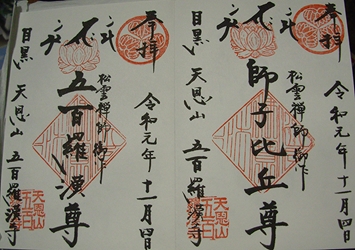 奉拝
令和元年十一月四日
松雲禅師御作
師子比丘尊
目黒 天恩山 五百羅漢寺
天恩山
五百
奉拝
令和元年十一月四日
松雲禅師御作
五百羅漢尊
目黒 天恩山 五百羅漢寺
天恩山
五百